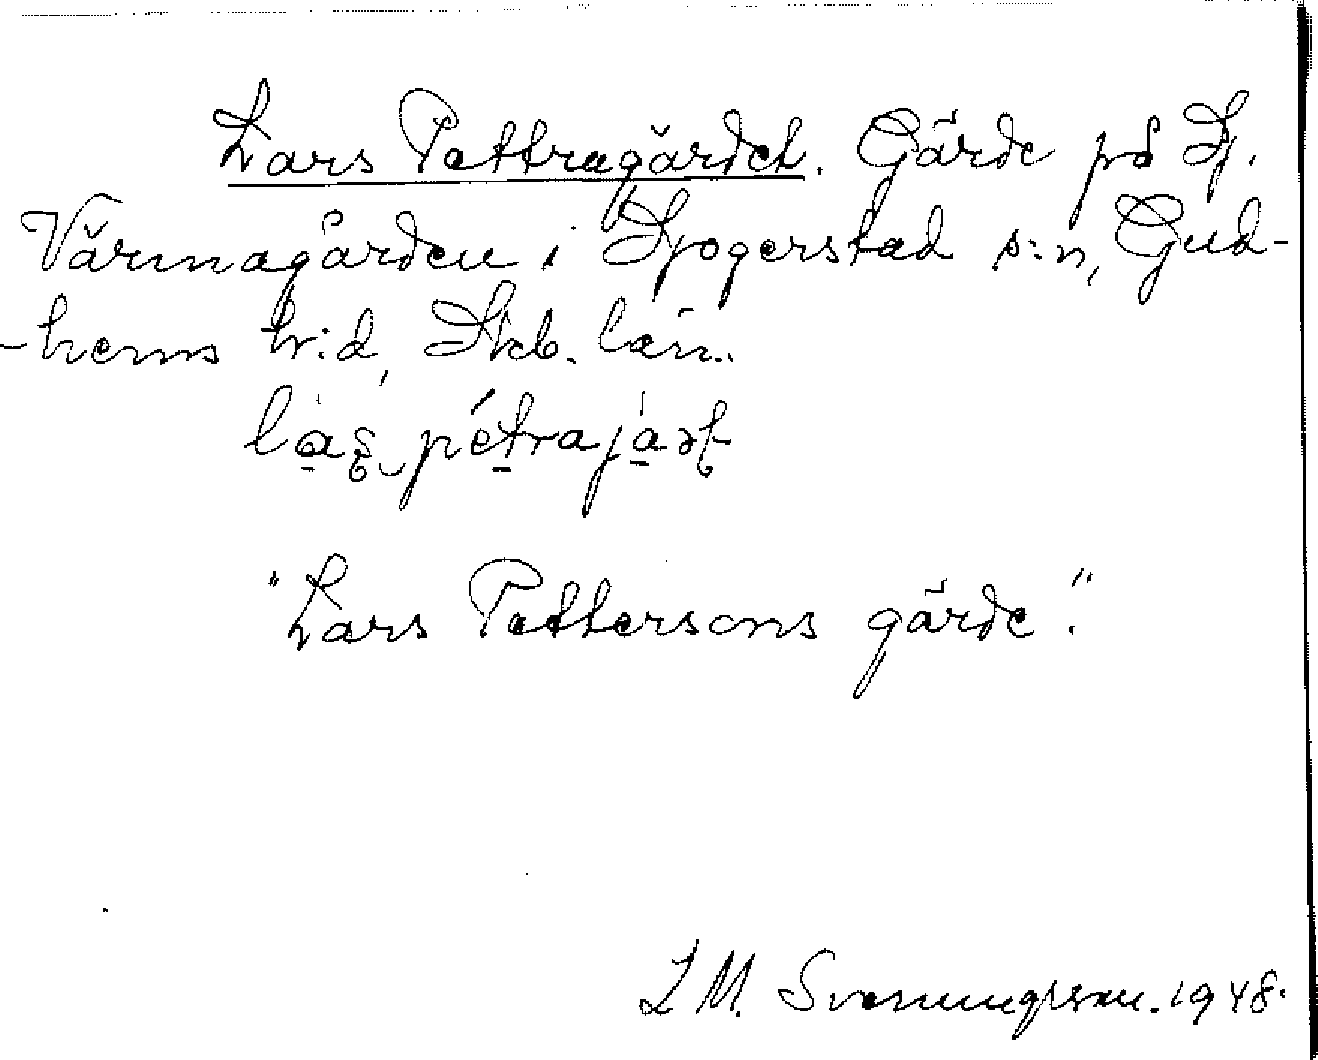 Lars Pettragärdet. Gärde på St.
Värmagården i Sjogerstad s:n, Gud-
-hems h:d, Skb. län.
"Lars Pettersons gärde".
L M. Svenungsson. 1948.